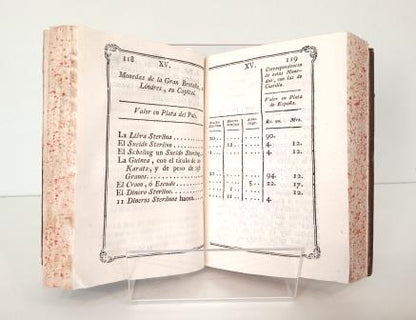 118
XV.
Monedas de la Gran Bretaña,
Londres, su Capital.
Valor en Plata del Pais.
La Libra Sterlina
El Sueldo Sterlino
El Scheling un Sueldo Sterling
La Guinea, con el titulo de 22
Karats, y de peso de
Granos.
El Crown, ó Escudo
El Dinero Sterlino.
11 Dineros Sterlinos hacen.
XV.
119
Correspondencia
de estas Mone-
das, con las de
Castilla.
Valor en Plata
de España.
Rs. vn. Mrs.
20 .. .. 90.
.. 12 .. 4. 12.
.. 12 .. 4. 12.
.. 94. 12.
.. 5. 22. 17.
.. 12.
.. 4.